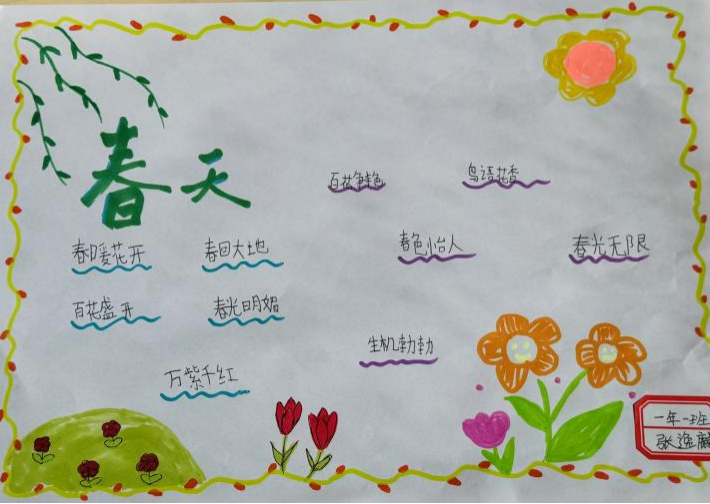 春天
百花争艳
鸟语花香
春暖花开
春回大地
春色怡人
春光无限
百花盛开
春光明媚
生机勃勃
万紫千红
一年一班
张逸